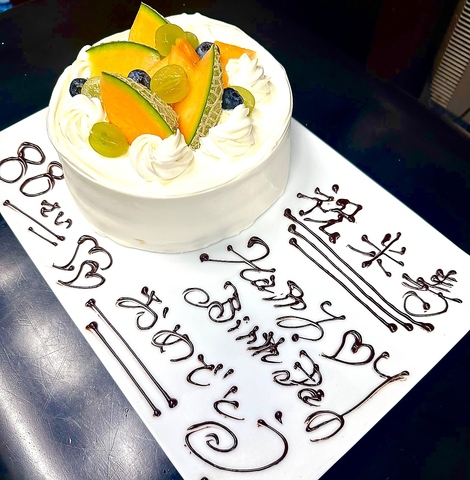 88さい
祝米寿
Happy
Birthday
おめでとう